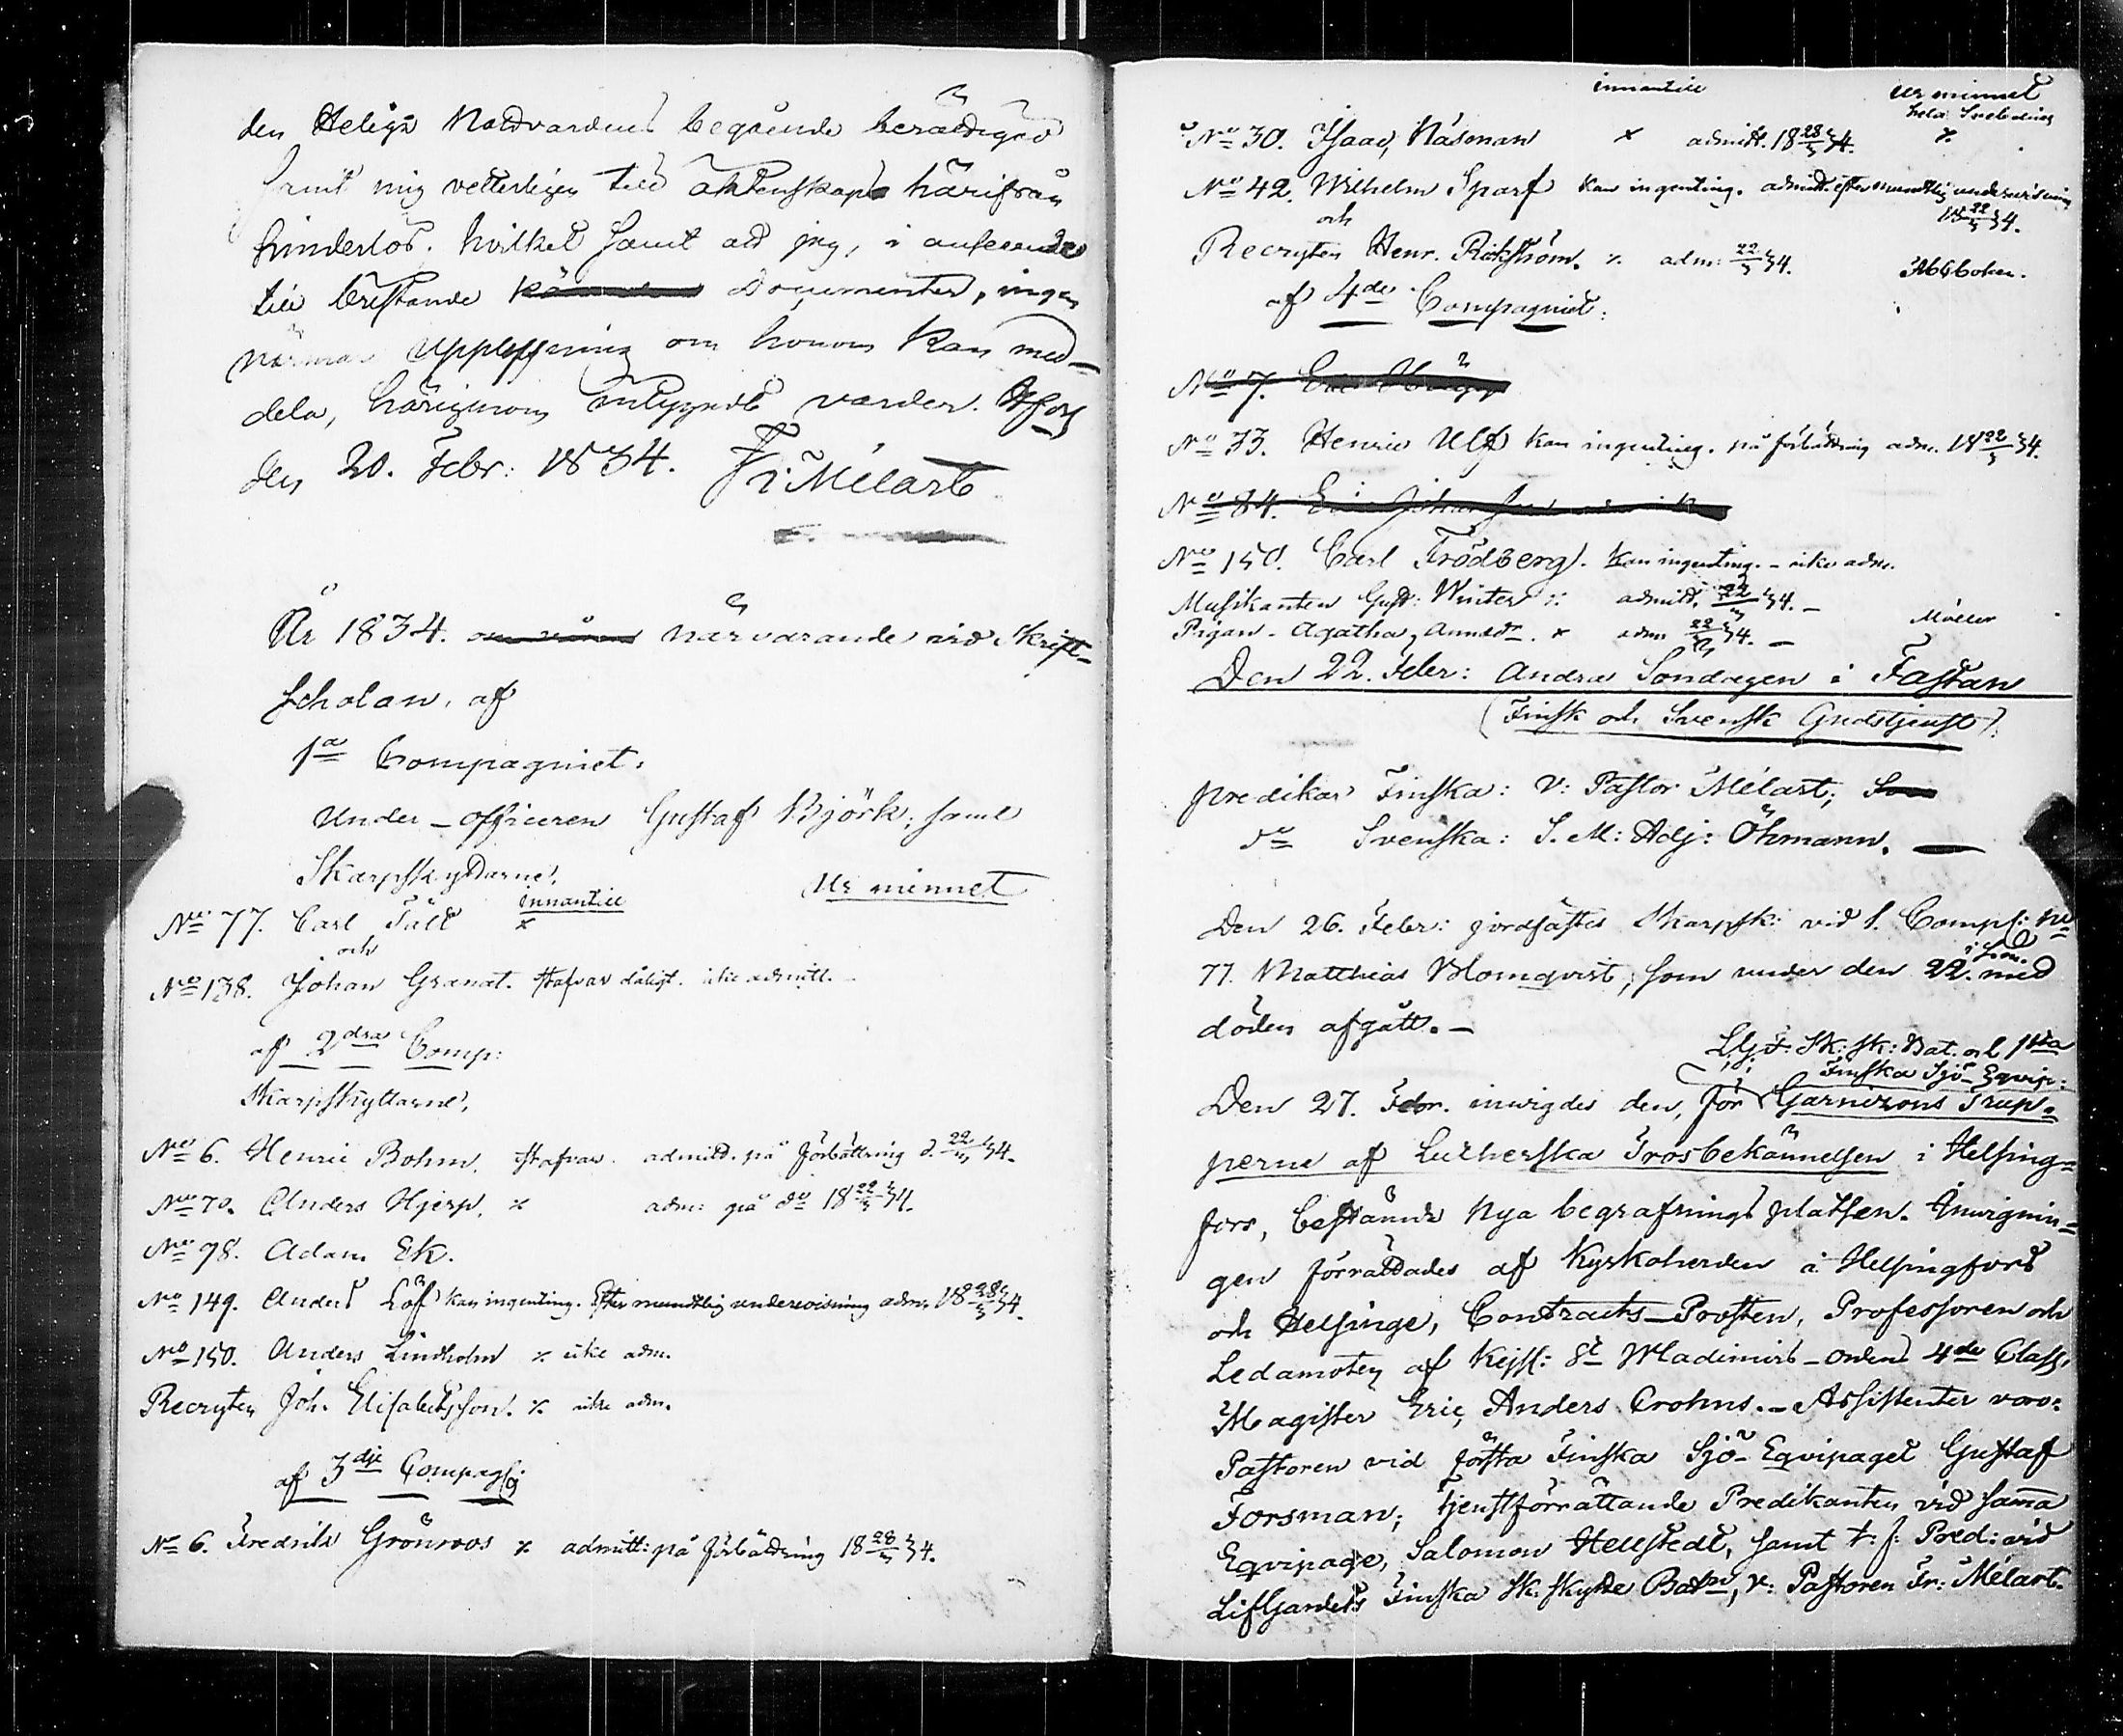 den Heliga Nattvardens begående berättigad
samt mig vetterligen till äktenskap härifrån
hinderlös. hvilket samt att jag, i anseende
till bristande Documenter, ingen
närmare upplysning om honom kan med-
dela, härigenom intygadt varder. Hfors
den 20. Febr: 1834. Fr: Mélart
År 1834. närvarande vid Skrift-
scholan, af
1a Compagniet:
Under-officeren Gustaf Björk; samt
Skarpskyttarne,
innantill Ur minnet
No 77. Carl Fält x
och
No 138. Johan Granat. stafvar dåligt. icke admitt.
af 2dra Comp:
Skarpskyttarne,
No 6. Henric Bohm. stafvar. admitt. på förbättring d. 22/3 34.
No 70. Anders Hjerp. x adm: på do 18 22/3 34.
No 98. Adam Ek.
No 149. Anders Löf kan ingenting. Efter muntlig undervisning adm. 18 28/3 34.
No 150. Anders Lindholm x icke adm.
Recryten Joh. Elisabetsson. x icke adm.
af 3dje Compag:
No 6. Fredrik Grönroos x admitt: på förbättring 18 28/3 34.
innantill ur minnet
No 30. Isaac Näsman x admitt. 18 28/3 34. x
No 42. Wilhelm Sparf kan ingenting. admitt. efter muntlig undervisning
18 22/3 34.
och
Recryten Henr. Rickström. x adm: 22/3 34. Abcboken.
af 4de Compagniet:
No 7.
No 33. Henric Ulf kan ingenting. på förbättring adm. 18 22/3 34.
No 84.
No 150. Carl Frödberg. kan ingenting. - icke adm.
Musikanten Gust: Winter x admitt. 22/3 34. -
Pigan Agatha x adm 22/3 34. - Möller
Den 22. Febr: Andra Söndagen i Fastan
(Finsk och Svensk Gudstjenst).
predikar Finska: V: Pastor Mélart;
do Svenska: S. M: Adj: Öhmann.
Den 26. Febr: jordfästes Skarpsk: vid 1. Comp: No
77. Matthias Blomqvist; som under den 22. med
döden afgått. -
L.G: F: Sk: sk: Bat. och 1sta
Finska Sjö-Eqvip:
Den 27. Febr. invigdes den, för Garnizons Trup-
perne af Lutherska Trosbekännelsen i Helsing-
fors, bestämda Nya begrafningsplatsen. Invignin-
gen förrättades af Kyrkoherden i Helsingfors
och Helsinge, Contracts-Prosten, Professoren och
Ledamoten af Kejs: St Wladimirs-ordens 4de Class,
Magister Eric Anders Crohns. - Assistenter voro:
Pastoren vid första Finska Sjö-Eqvipaget Gustaf
Forsman; tjenstförrättande Predikanten vid samma
Eqvipage, Salomon Hellstedt, samt t: f: Pred: vid
LifGardets Finska Sk: skytte Batn, v: Pastoren Fr: Mélart.